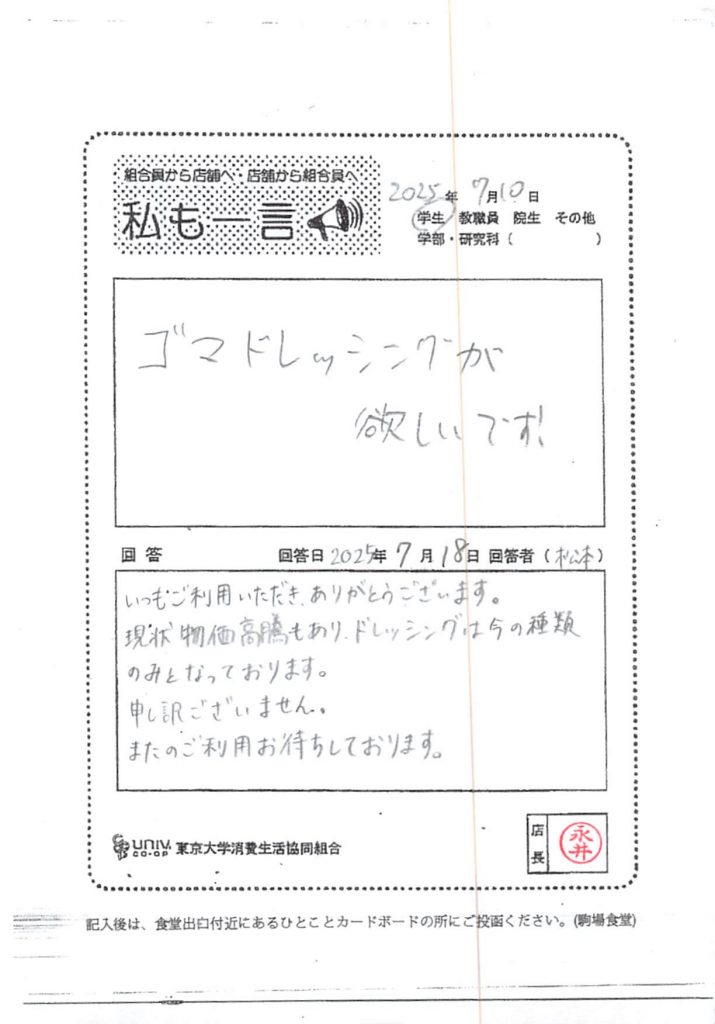 組合員から店舗へ・店舗から組合員へ
私も一言
2025年 7月10日
学生 教職員 院生 その他
学部・研究科( )
ゴマドレッシングが
欲しいです!
回答 回答日 2025年 7月18日 回答者(松本)
いつもご利用いただき、ありがとうございます。
現状物価高騰もあり、ドレッシングは今の種類
のみとなっております。
申し訳ございません。
またのご利用お待ちしております。
UNIV. CO-OP 東京大学消費生活協同組合
店長 永井
記入後は、食堂出口付近にあるひとことカードボードの所にご投函ください。(駒場食堂)